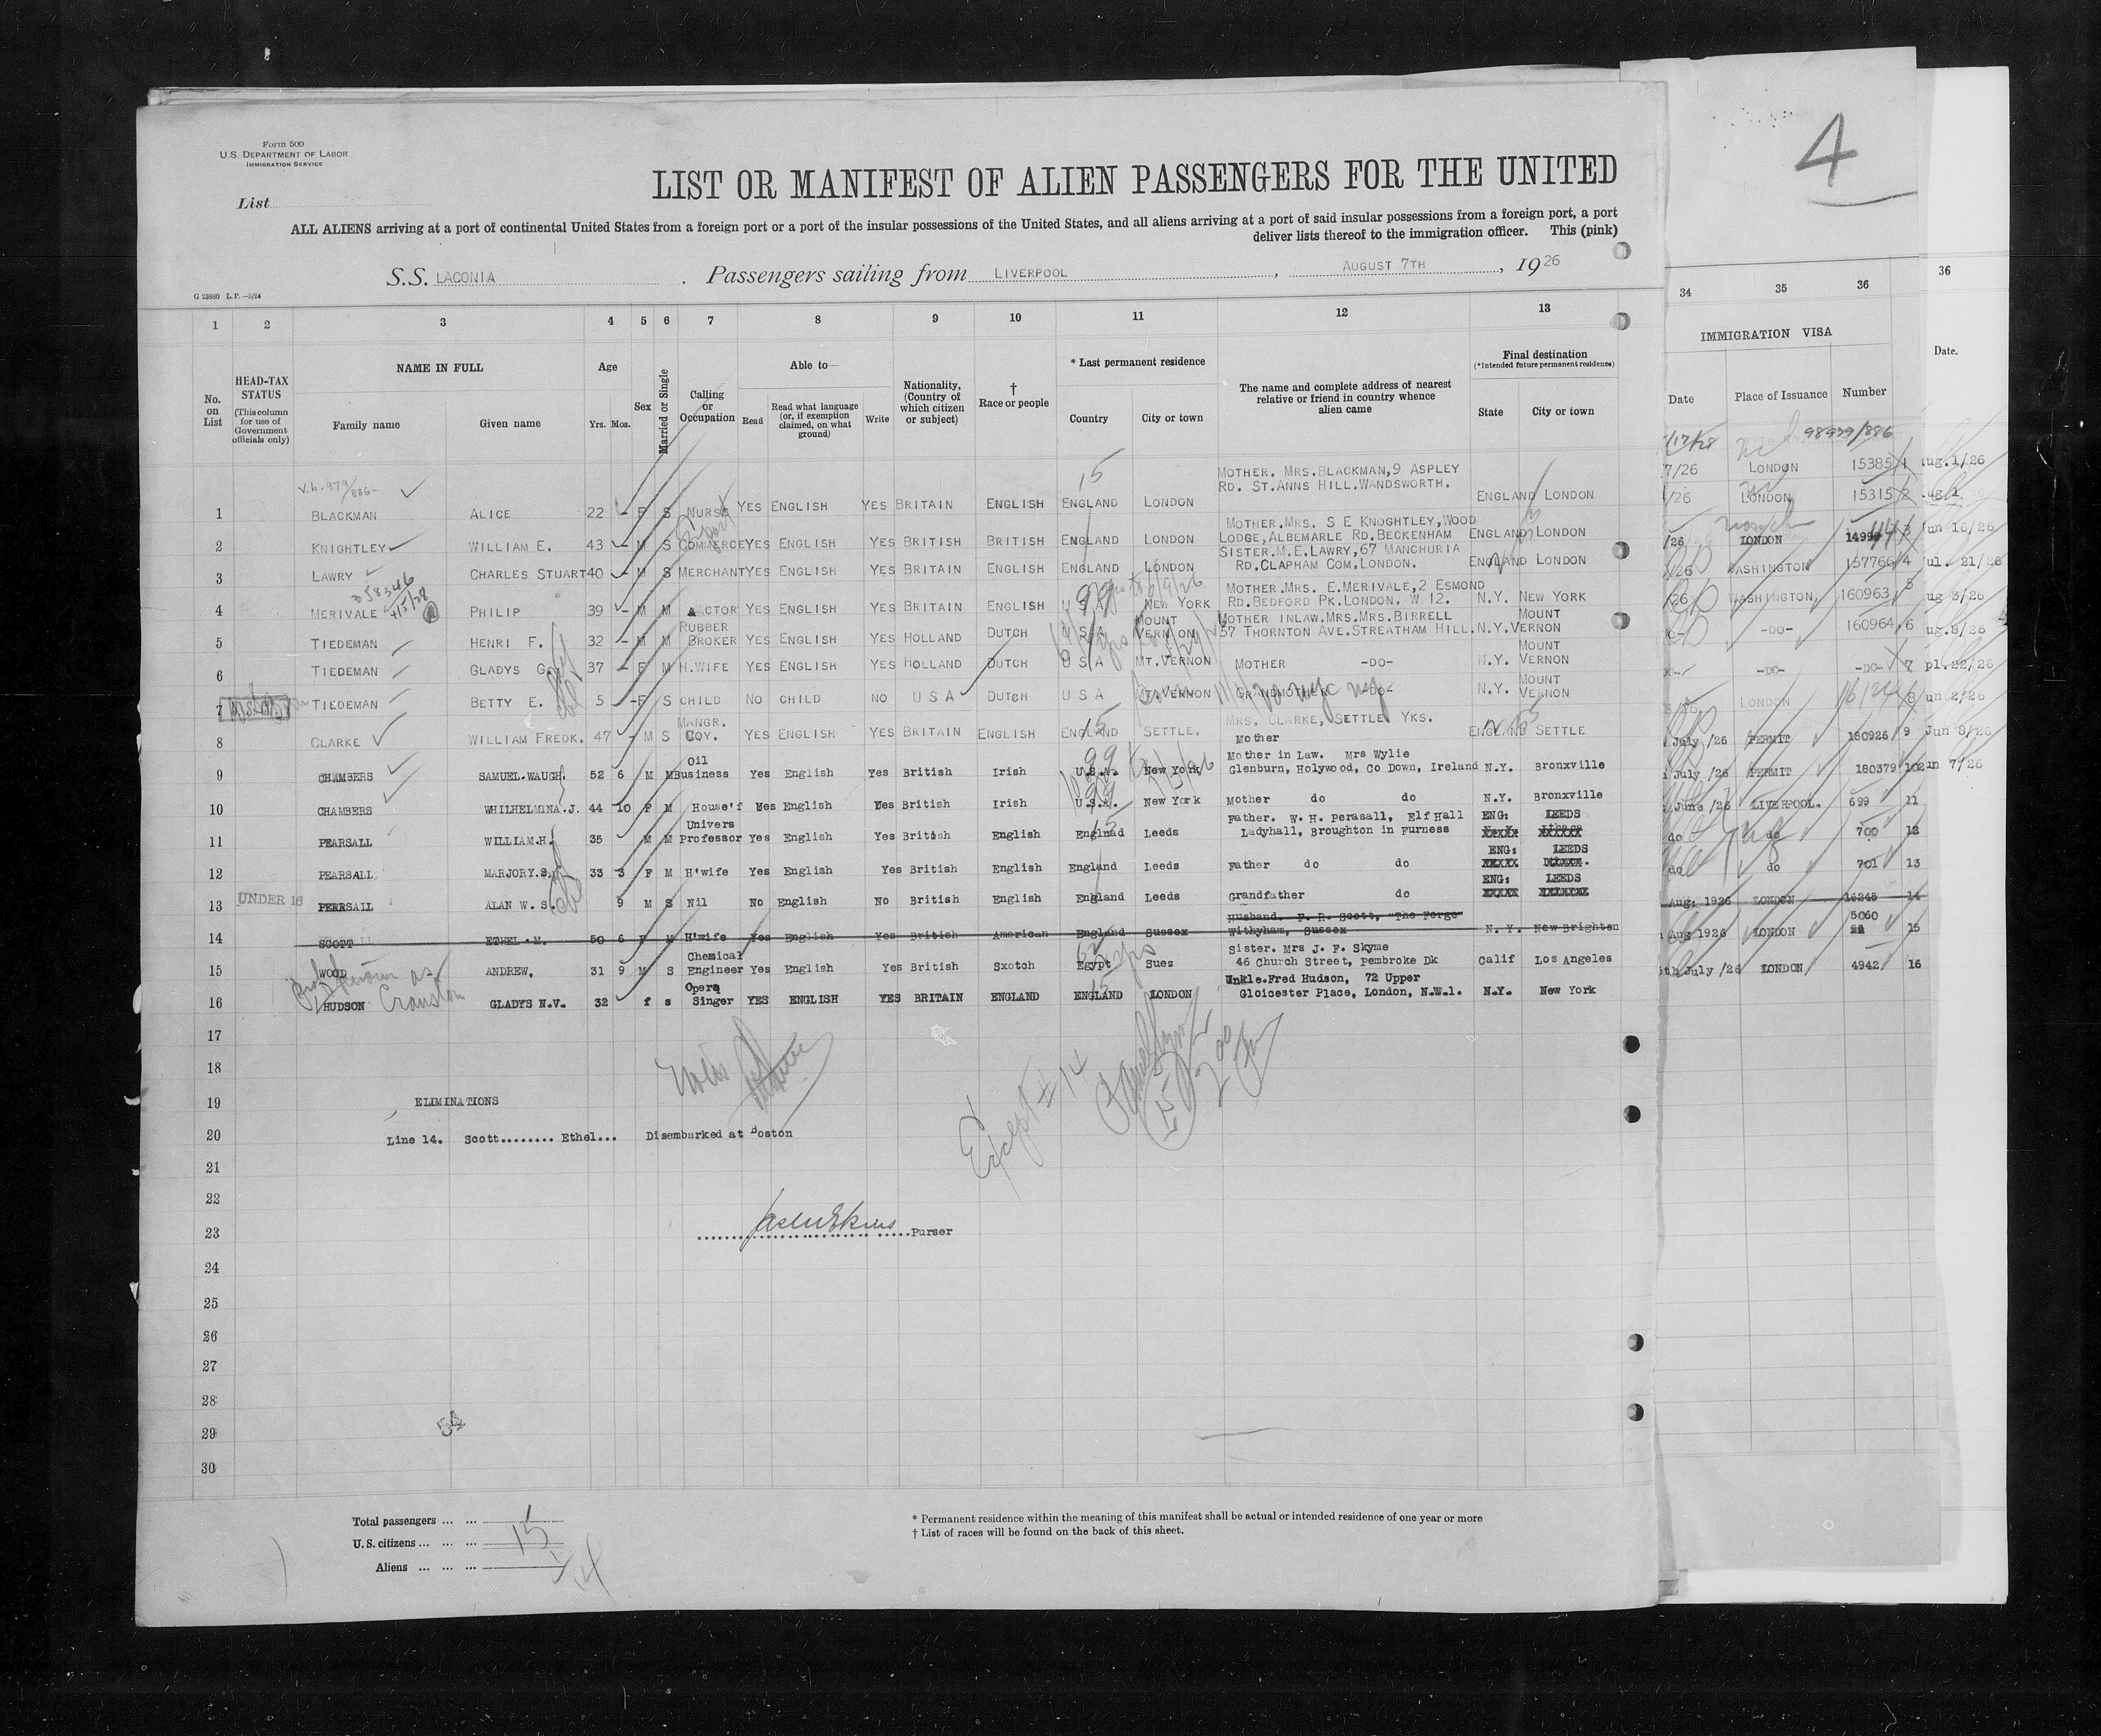 Form 500
U.S. DEPARTMENT OF LABOR
IMMIGRATION SERVICE
4
LIST OR MANIFEST OF ALIEN PASSENGERS FOR THE UNITED
List
ALL ALIENS arriving at a port of continental United States from a foreign port or a port of the insular possessions of the United States, and all aliens arriving at a port of said insular possessions from a foreign port, a port
deliver lists thereof to the immigration officer. This (pink)
S.S. LACONIA . Passengers sailing from LIVERPOOL , AUGUST 7TH , 19 26
G 23880 L.P.—5/24
1 2 3 4 5 6 7 8 9 10 11 12 13 34 35 36 36
IMMIGRATION VISA
No. on List
HEAD-TAX STATUS (This column for use of Government officials only)
NAME IN FULL
Family name Given name
Age
Yrs. Mos.
Sex
Married or Single
Calling or Occupation
Able to—
Read Read what language (or, if exemption claimed, on what ground) Write
Nationality, (Country of which citizen or subject)
† Race or people
* Last permanent residence
Country City or town
The name and complete address of nearest relative or friend in country whence alien came
Final destination
(*Intended future permanent residence)
State City or town
Date Place of Issuance Number Date.
98979/886
V.L. 979/886-
MOTHER. MRS.BLACKMAN,9 ASPLEY
RD. ST.ANNS HILL.WANDSWORTH.
1 BLACKMAN ALICE 22 - F S NURSE YES ENGLISH YES BRITAIN ENGLISH ENGLAND LONDON ENGLAND LONDON
MOTHER.MRS. S E KNOGHTLEY,WOOD
2 KNIGHTLEY WILLIAM E. 43 - M S COMMERCE YES ENGLISH YES BRITISH BRITISH ENGLAND LONDON LODGE,ALBEMARLE RD,BECKENHAM ENGLAND LONDON
SISTER.M.E.LAWRY,67 MANCHURIA
3 LAWRY CHARLES STUART 40 - M S MERCHANT YES ENGLISH YES BRITAIN ENGLISH ENGLAND LONDON RD.CLAPHAM COM.LONDON. ENGLAND LONDON
MOTHER.MRS. E.MERIVALE,2 ESMOND
4 MERIVALE PHILIP 39 - M M ACTOR YES ENGLISH YES BRITAIN ENGLISH U S A NEW YORK RD.BEDFORD PK.LONDON. W 12. N.Y. NEW YORK
RUBBER MOUNT MOTHER INLAW.MRS.MRS.BIRRELL MOUNT
5 TIEDEMAN HENRI F. 32 - M M BROKER YES ENGLISH YES HOLLAND DUTCH U S A VERNON 57 THORNTON AVE.STREATHAM HILL. N.Y. VERNON
MOUNT
6 TIEDEMAN GLADYS G. 37 - F M H.WIFE YES ENGLISH YES HOLLAND DUTCH U S A MT.VERNON MOTHER -DO- N.Y. VERNON
MOUNT
7 TIEDEMAN BETTY E. 5 - F S CHILD NO CHILD NO U S A DUTCH U S A MT.VERNON GRANDMOTHER -DO- N.Y. VERNON
MANGR. MRS. CLARKE, SETTLE YKS.
8 CLARKE WILLIAM FREDK. 47 - M S COY. YES ENGLISH YES BRITAIN ENGLISH ENGLAND SETTLE. Mother ENGLAND SETTLE
Oil Mother in Law. Mrs Wylie
9 CHAMBERS SAMUEL.WAUGH. 52 6 M M Business Yes English Yes British Irish U.S.A. New York Glenburn, Holywood, Co Down, Ireland N.Y. Bronxville
10 CHAMBERS WHILHELMINA.J. 44 10 F M House'f Yes English Yes British Irish U.S.A. New York Mother do do N.Y. Bronxville
Univers Father. W. H. Perasall, Elf Hall ENG: LEEDS
11 PEARSALL WILLIAM.H. 35 M M Professor Yes English Yes British English Englnad Leeds Ladyhall, Broughton in Furness
ENG: LEEDS
12 PEARSALL MARJORY.S. 33 3 F M H'wife Yes English Yes British English England Leeds Father do do
ENG: LEEDS
UNDER 16
13 PEARSALL ALAN W. S. 9 M S Nil No English No British English England Leeds Grandfather do
Husband. F. R. Scott, "The Forge"
14 SCOTT ETHEL.M. 50 6 F M H'wife Yes English Yes British American England Sussex Withyham, Sussex N.Y. New Brighten
Chemical Sister. Mrs J. F. Skyme
15 WOOD ANDREW, 31 9 M S Engineer Yes English Yes British Sxotch Egypt Suez 46 Church Street, Pembroke Dk Calif Los Angeles
known as Cranston
Opera Unkle.Fred Hudson, 72 Upper
16 HUDSON GLADYS N.V. 32 f s Singer YES ENGLISH YES BRITAIN ENGLAND ENGLAND LONDON Gloicester Place, London, N.W.1. N.Y. New York
7/26 LONDON 15385 1 ug.1/26
/26 LONDON 15315 2 ug.1
/26 LONDON 3 Jun 16/26
/26 WASHINGTON 157766 4 Jul. 21/26
/26 WASHINGTON 160963 5 ug 3/26
-DO- 160964 6 ug.8/26
DO- -DO- -DO- 7 pl.22/26
/26. LONDON 8 un 2/26
July /26 PERMIT 180926 9 Jun 8/26
July /26 PERMIT 180379 10 un 7/26
June /26 LIVERPOOL. 699 11
do do 700 12
do do 701 13
Aug: 1926 LONDON 16245 14
5060
Aug 1926 LONDON 15
5th July /26 LONDON 4942 16
17
18
19 ELIMINATIONS
20 Line 14. Scott........ Ethel... Disembarked at Boston
Except # 14
21
22
23 Purser
24
25
26
27
28
29
30
54
Total passengers ... ... 15
U.S. citizens ... ... ... 1
Aliens ... ... ... 14
* Permanent residence within the meaning of this manifest shall be actual or intended residence of one year or more
† List of races will be found on the back of this sheet.